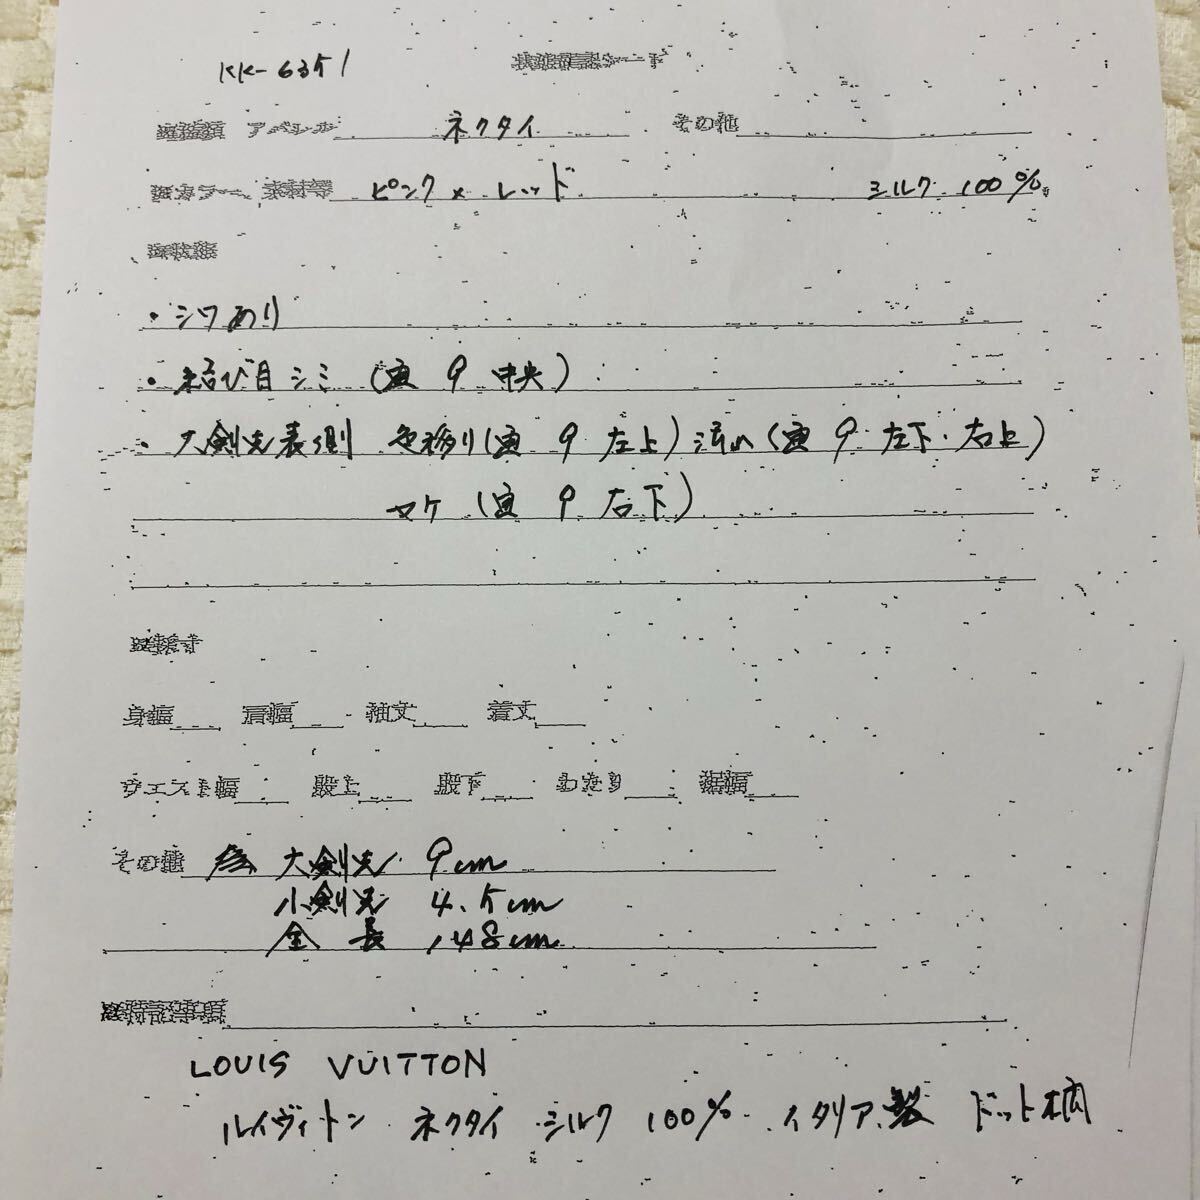 KK-6351
状態確認シート
アパレル ネクタイ その他
カラー、素材等 ピンク×レッド シルク 100%
・シワあり
・結び目シミ (画 9 中央)
・大剣先表側 色移り(画 9 左上) 汚れ(画 9 左下・右上)
ヤケ (画 9 右下)
採寸
身幅 肩幅 袖丈 着丈
ウエスト幅 股上 股下 わたり 裾幅
その他 大剣先 9cm
小剣先 4.5cm
全長 148cm
特記事項
LOUIS VUITTON
ルイヴィトン ネクタイ シルク 100% イタリア製 ドット柄